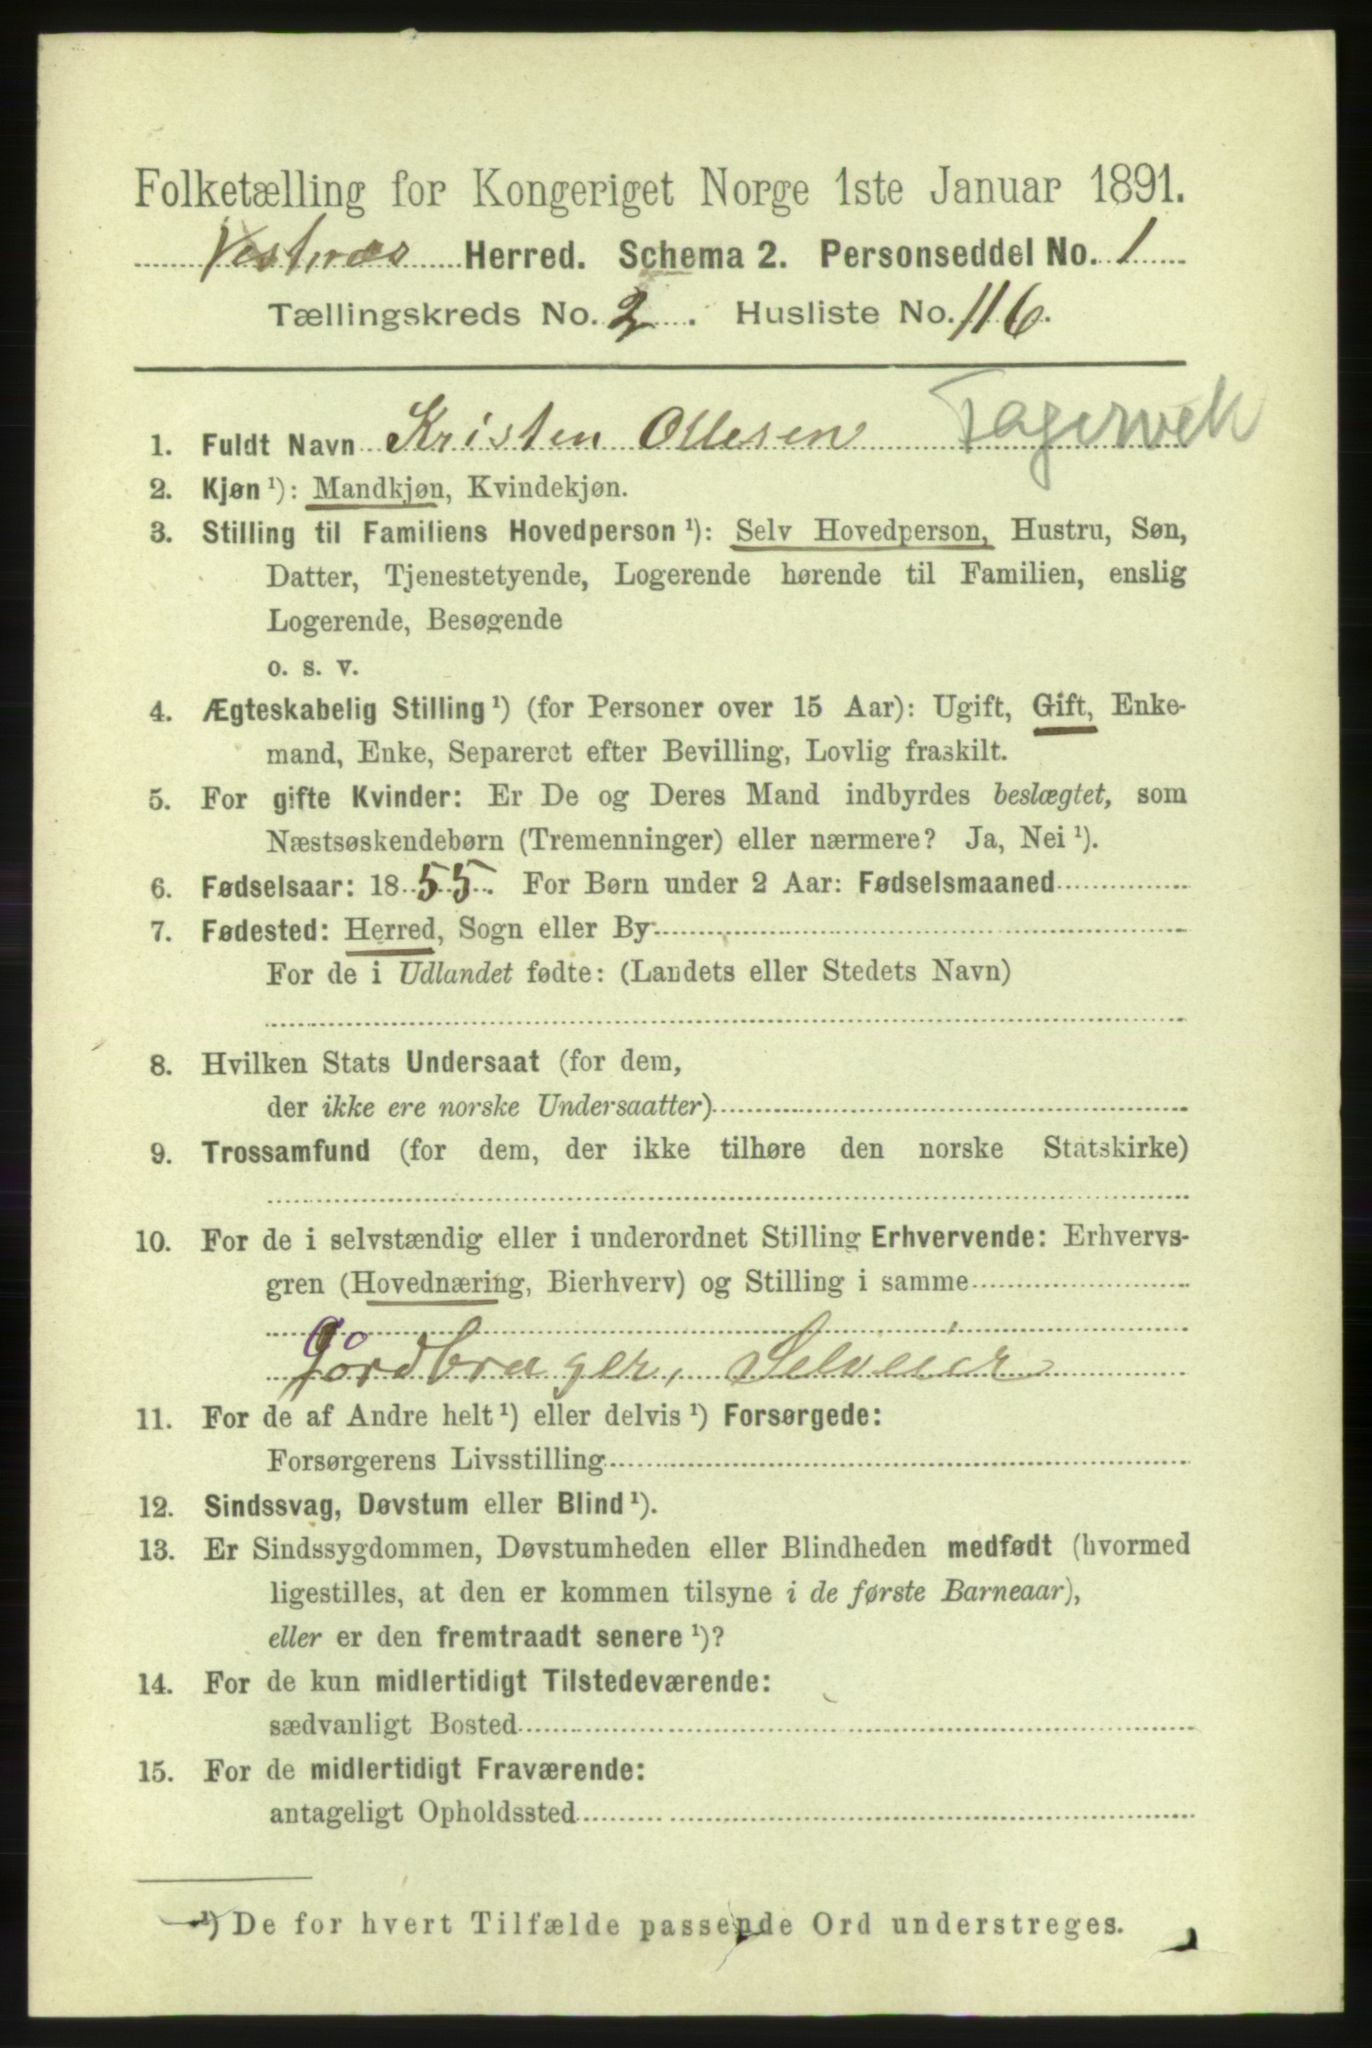 Folketælling for Kongeriget Norge 1ste Januar 1891.
Vestnæs Herred. Schema 2. Personseddel No. 1
Tællingskreds No. 2. Husliste No. 116.
1. Fuldt Navn Kristen Ollesen Fagervek
2. Kjøn ¹): Mandkjøn, Kvindekjøn.
3. Stilling til Familiens Hovedperson ¹): Selv Hovedperson, Hustru, Søn,
Datter, Tjenestetyende, Logerende hørende til Familien, enslig
Logerende, Besøgende
o. s. v.
4. Ægteskabelig Stilling ¹) (for Personer over 15 Aar): Ugift, Gift, Enke-
mand, Enke, Separeret efter Bevilling, Lovlig fraskilt.
5. For gifte Kvinder: Er De og Deres Mand indbyrdes beslægtet, som
Næstsøskendebørn (Tremenninger) eller nærmere? Ja, Nei ¹).
6. Fødselsaar: 1855. For Børn under 2 Aar: Fødselsmaaned
7. Fødested: Herred, Sogn eller By
For de i Udlandet fødte: (Landets eller Stedets Navn)
8. Hvilken Stats Undersaat (for dem,
der ikke ere norske Undersaatter)
9. Trossamfund (for dem, der ikke tilhøre den norske Statskirke)
10. For de i selvstændig eller i underordnet Stilling Erhvervende: Erhvervs-
gren (Hovednæring, Bierhverv) og Stilling i samme
Gårdbruger, Selveier
11. For de af Andre helt ¹) eller delvis ¹) Forsørgede:
Forsørgerens Livsstilling
12. Sindssvag, Døvstum eller Blind ¹).
13. Er Sindssygdommen, Døvstumheden eller Blindheden medfødt (hvormed
ligestilles, at den er kommen tilsyne i de første Barneaar),
eller er den fremtraadt senere ¹)?
14. For de kun midlertidigt Tilstedeværende:
sædvanligt Bosted
15. For de midlertidigt Fraværende:
antageligt Opholdssted
¹) De for hvert Tilfælde passende Ord understreges.